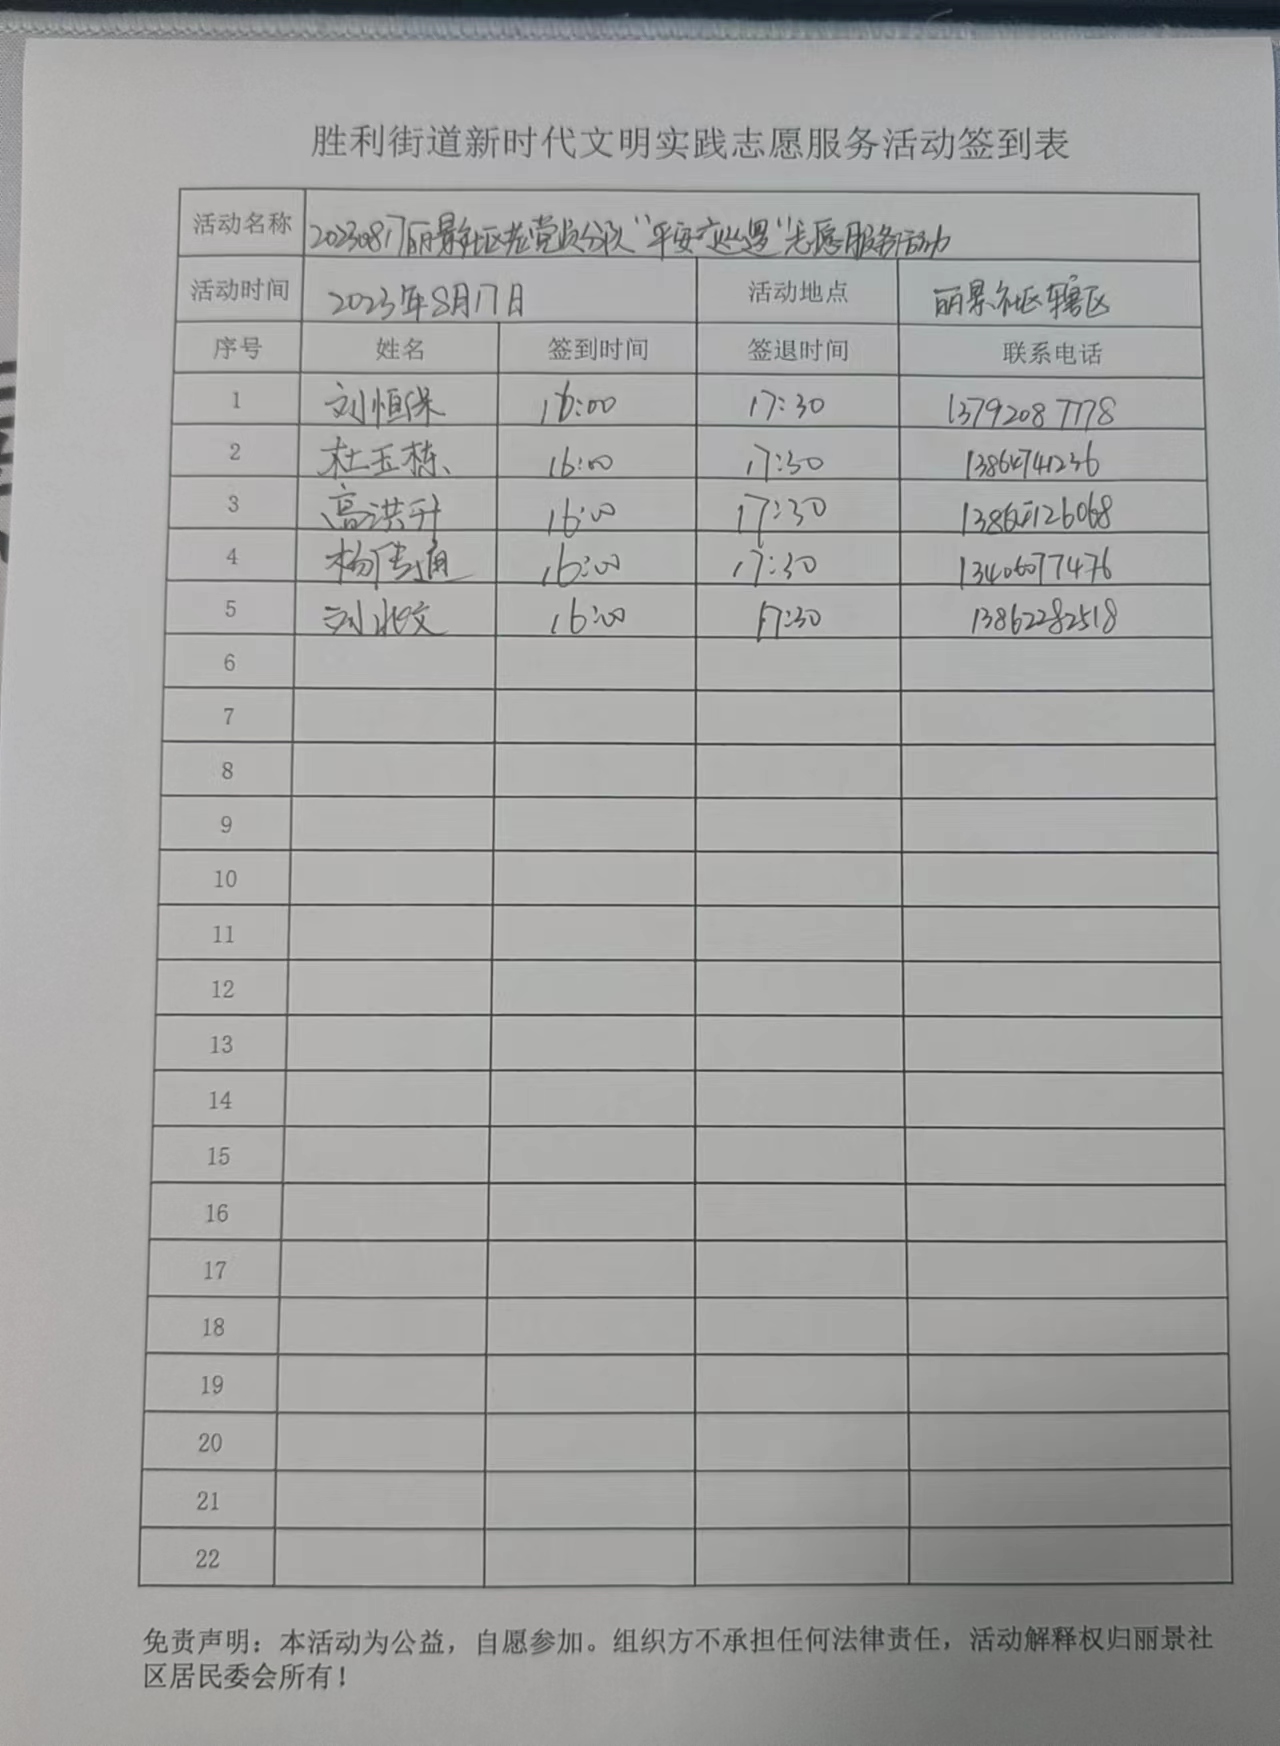 胜利街道新时代文明实践志愿服务活动签到表
活动名称 20230817丽景社区老党员分队“平安夜巡逻”志愿服务活动
活动时间 2023年8月17日 活动地点 丽景社区辖区
序号 姓名 签到时间 签退时间 联系电话
1 刘恒保 16:00 17:30 13792087778
2 杜玉栋 16:00 17:30 13864741236
3 高洪升 16:00 17:30
4 杨传通 16:00 17:30 13406077476
5 16:00 17:30 13862282518
6
7
8
9
10
11
12
13
14
15
16
17
18
19
20
21
22
免责声明：本活动为公益，自愿参加。组织方不承担任何法律责任，活动解释权归丽景社
区居民委会所有！